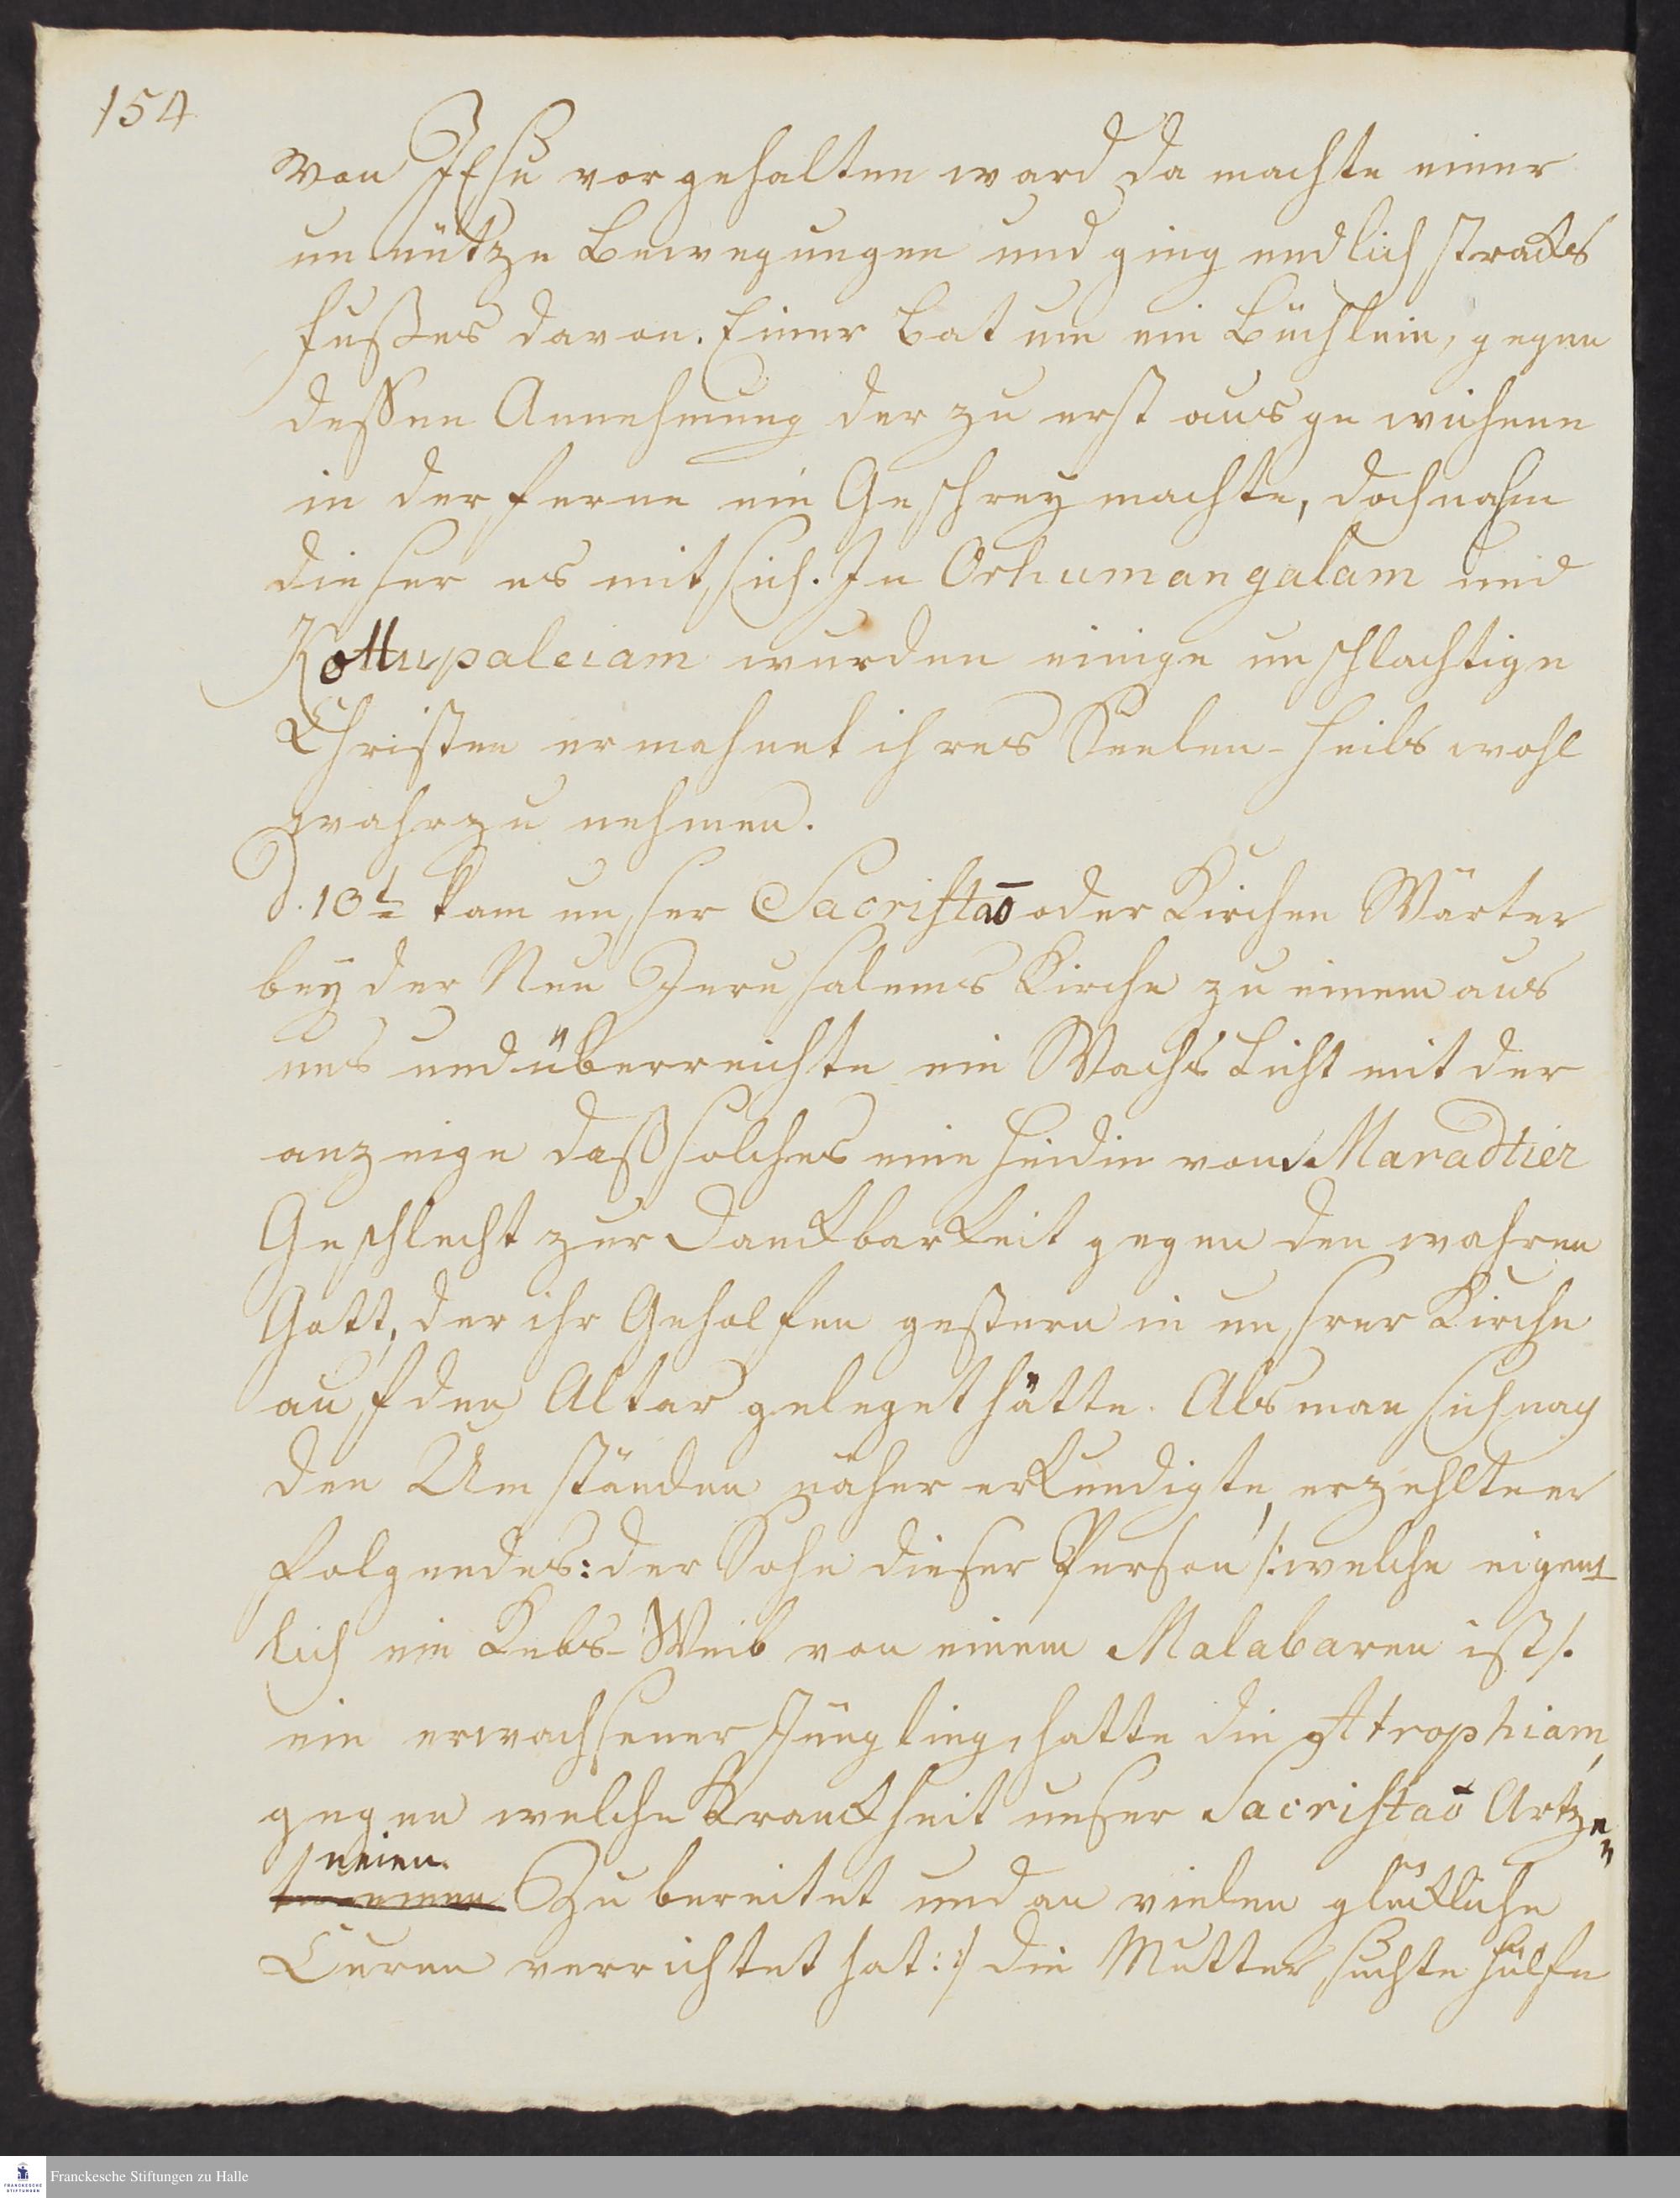 154.
von JEsu vorgehalten ward da machte einer
unnütze Bewegungen und ging endlich stracks
fußes davon. Einer bat um ein Büchlein, gegen
deßen Annehmung der zu erst ausgewichene
in der ferne ein Geschrey machte, doch nahm
dieser es mit sich. In Orhumangalam und
Kottupaleiam wurden einige unschlachtige
Christen ermahnet ihres Seelen-Heils wohl
wahrzu nehmen.
D. 10t kam unser Sacristaō oder Kirchen Wärter
bey der Neu Jerusalems Kirche zu einem aus
uns und überreichte ein Wachs Licht mit der
anzeige daß solches eine Heidin von Maradtier
Geschlecht zur Danckbarkeit gegen den wahren
Gott, der ihr Geholfen gestern in unsrer Kirche
auf den Altar geleget hätte. Als man sich nach
den Umständen näher erkundigte, erzehlte er
folgendes: der Sohn dieser Person /: welche eigent-
lich ein Kebs-Weib von einem Malabaren ist /.
ein erwachsener Jüngling, hatte die Atrophiam,
gegen welche Kranckheit unser Sacristaō Artze-
neien Zubereitet und an vielen glückliche
Curen verrichtet hat :/ die Mutter suchte Hülfe
Franckesche Stiftungen zu Halle
FRANCKESCHE STIFTUNGEN